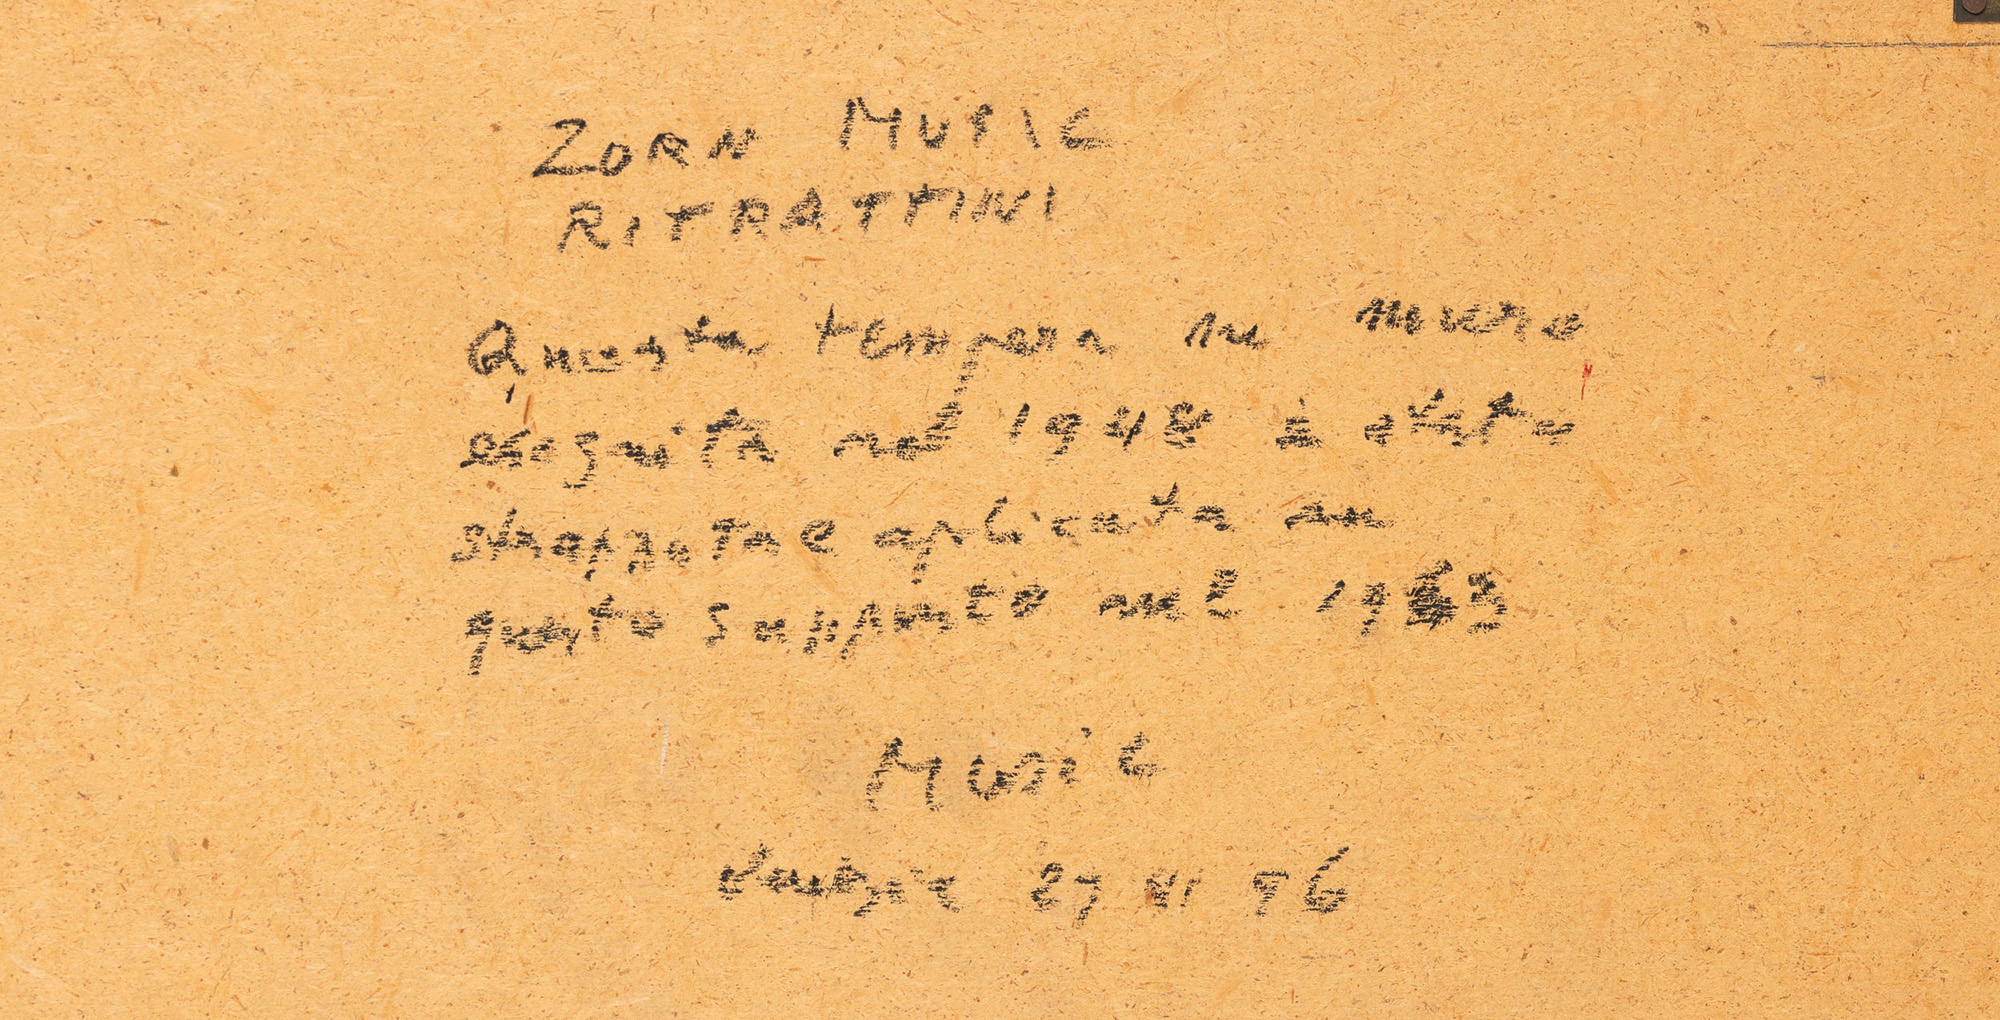 ZORN MUSIC
RITRATTINI
Questa tempera su muro
eseguita nel 1948 è stata
strappata e aplicata su
questo supporto nel 1963
Music
Venezia 27 VI 96